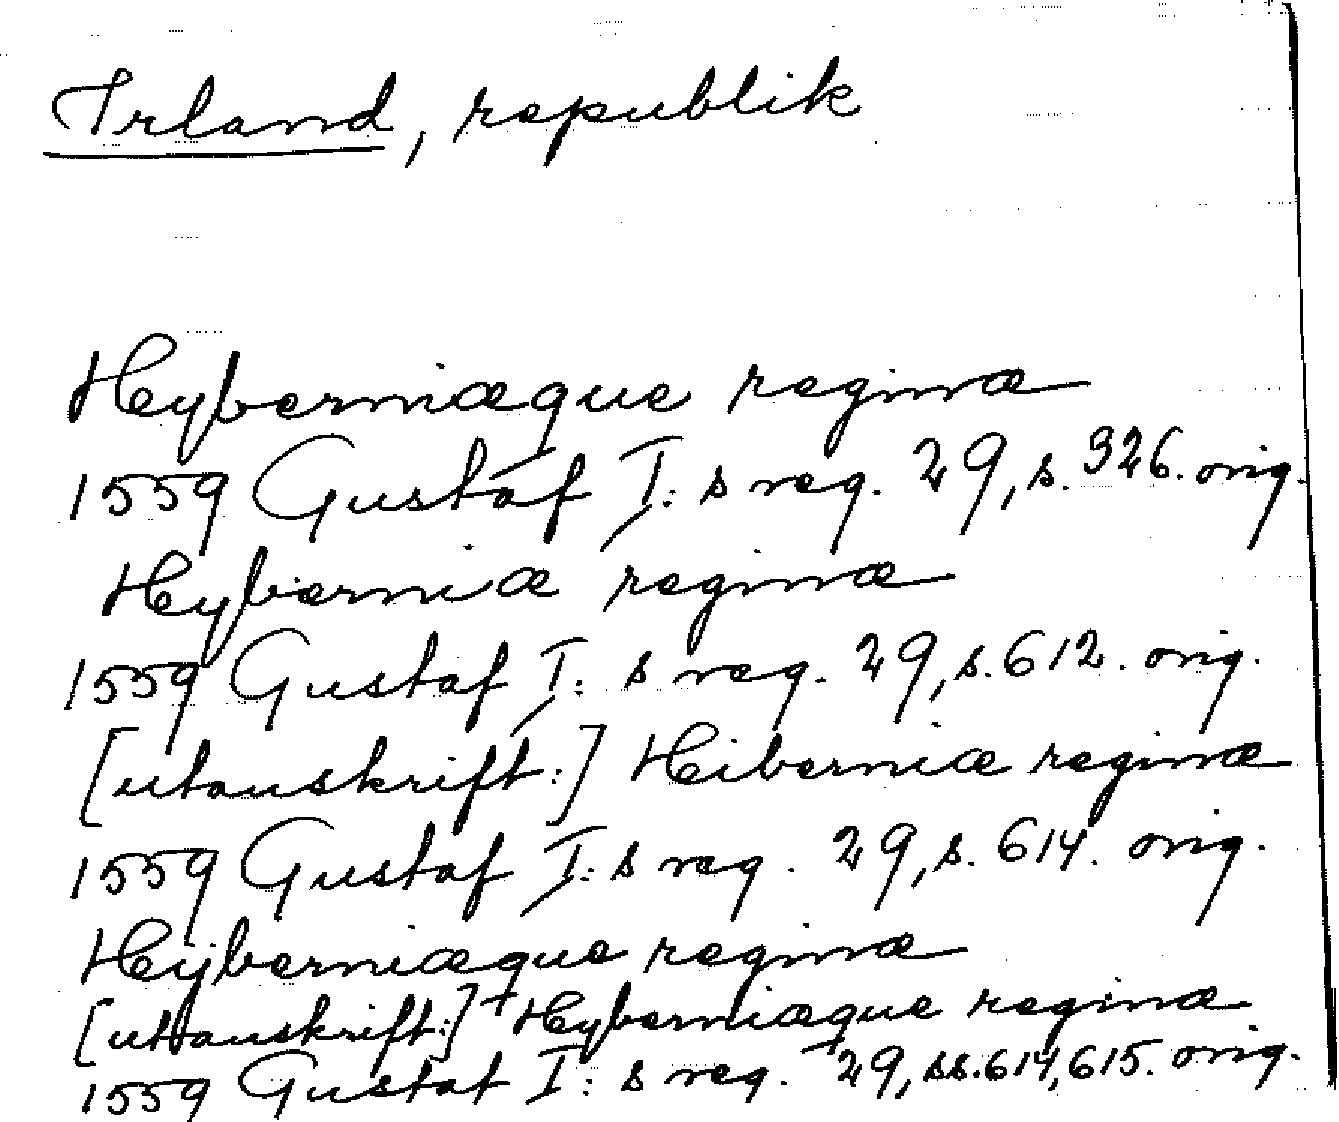 Irland, republik
Hyberniæque reginæ
1559 Gustaf I:s reg. 29, s. 326. orig.
Hyberniæ reginæ
1559 Gustaf I:s reg. 29, s. 612. orig.
[utanskrift:] Hiberniæ reginæ
1559 Gustaf I:s reg. 29, s. 614. orig.
Hyberniæque reginæ
[uttanskrift:] Hyberniæque reginæ
1559 Gustaf I:s reg. 29, ss. 614, 615. orig.